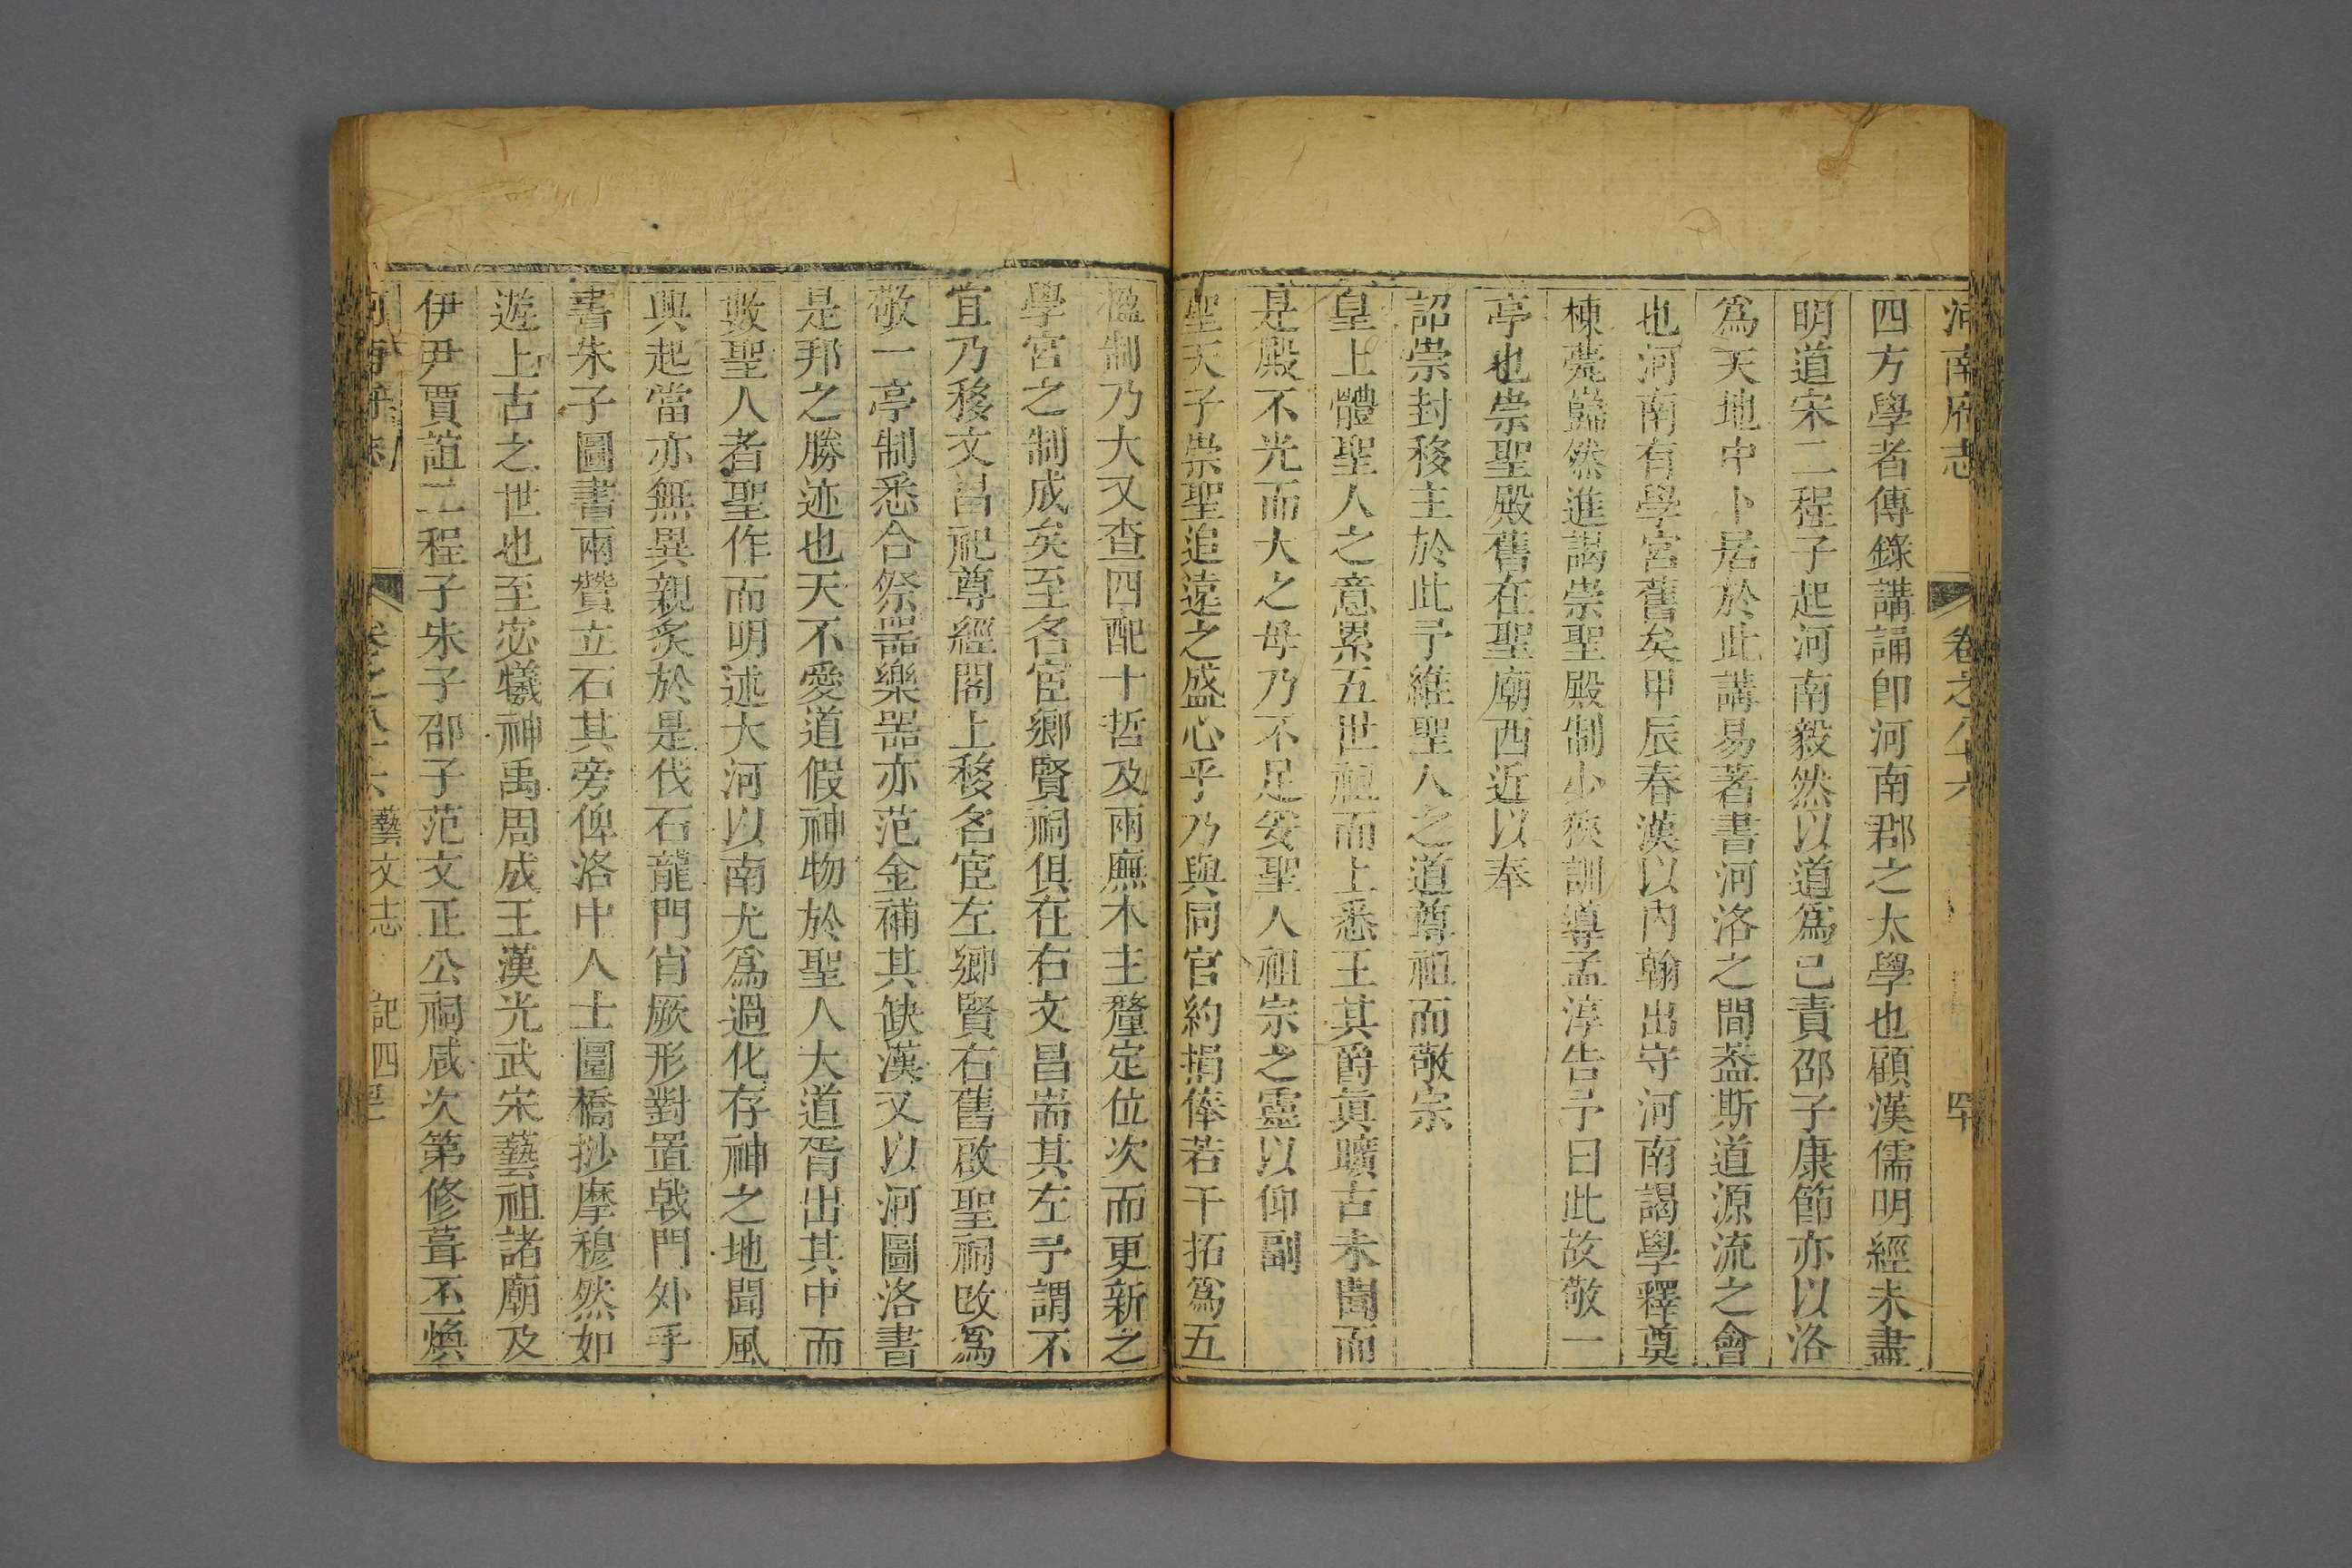 河南府志 卷之八十六 四十
四方學者傳錄講誦卽河南郡之太學也顧漢儒明經未盡
明道宋二程子起河南毅然以道爲己責邵子康節亦以洛
爲天地中卜居於此講易著書河洛之間葢斯道源流之會
也河南有學宮舊矣甲辰春漢以內翰出守河南謁學釋奠
棟甍巋然進謁崇聖殿制少狹訓導孟淳告予曰此故敬一
亭也崇聖殿舊在聖廟西近以奉
詔崇封移主於此予維聖人之道尊祖而敬宗
皇上體聖人之意累五世祖而上悉王其爵眞曠古未聞而
是殿不光而大之毋乃不足妥聖人祖宗之靈以仰副
聖天子崇聖追遠之盛心乎乃與同官約捐俸若干拓爲五
楹制乃大又查四配十哲及兩廡木主釐定位次而更新之
學宮之制成矣至名宦鄉賢祠俱在右文昌耑其左予謂不
宜乃移文昌祀尊經閣上移名宦左鄉賢右舊啟聖祠改爲
敬一亭制悉合祭器樂器亦范金補其缺漢又以河圖洛書
是邦之勝迹也天不愛道假神物於聖人大道胥出其中而
數聖人者聖作而明述大河以南尤爲過化存神之地聞風
興起當亦無異親炙於是伐石龍門肖厥形對置戟門外手
書朱子圖書兩贊立石其旁俾洛中人士圜橋抄摩穆然如
遊上古之世也至宓犧神禹周成王漢光武宋藝祖諸廟及
伊尹賈誼二程子朱子邵子范文正公祠咸次第修葺丕煥
河南府志 卷之八十六 藝文志 記四